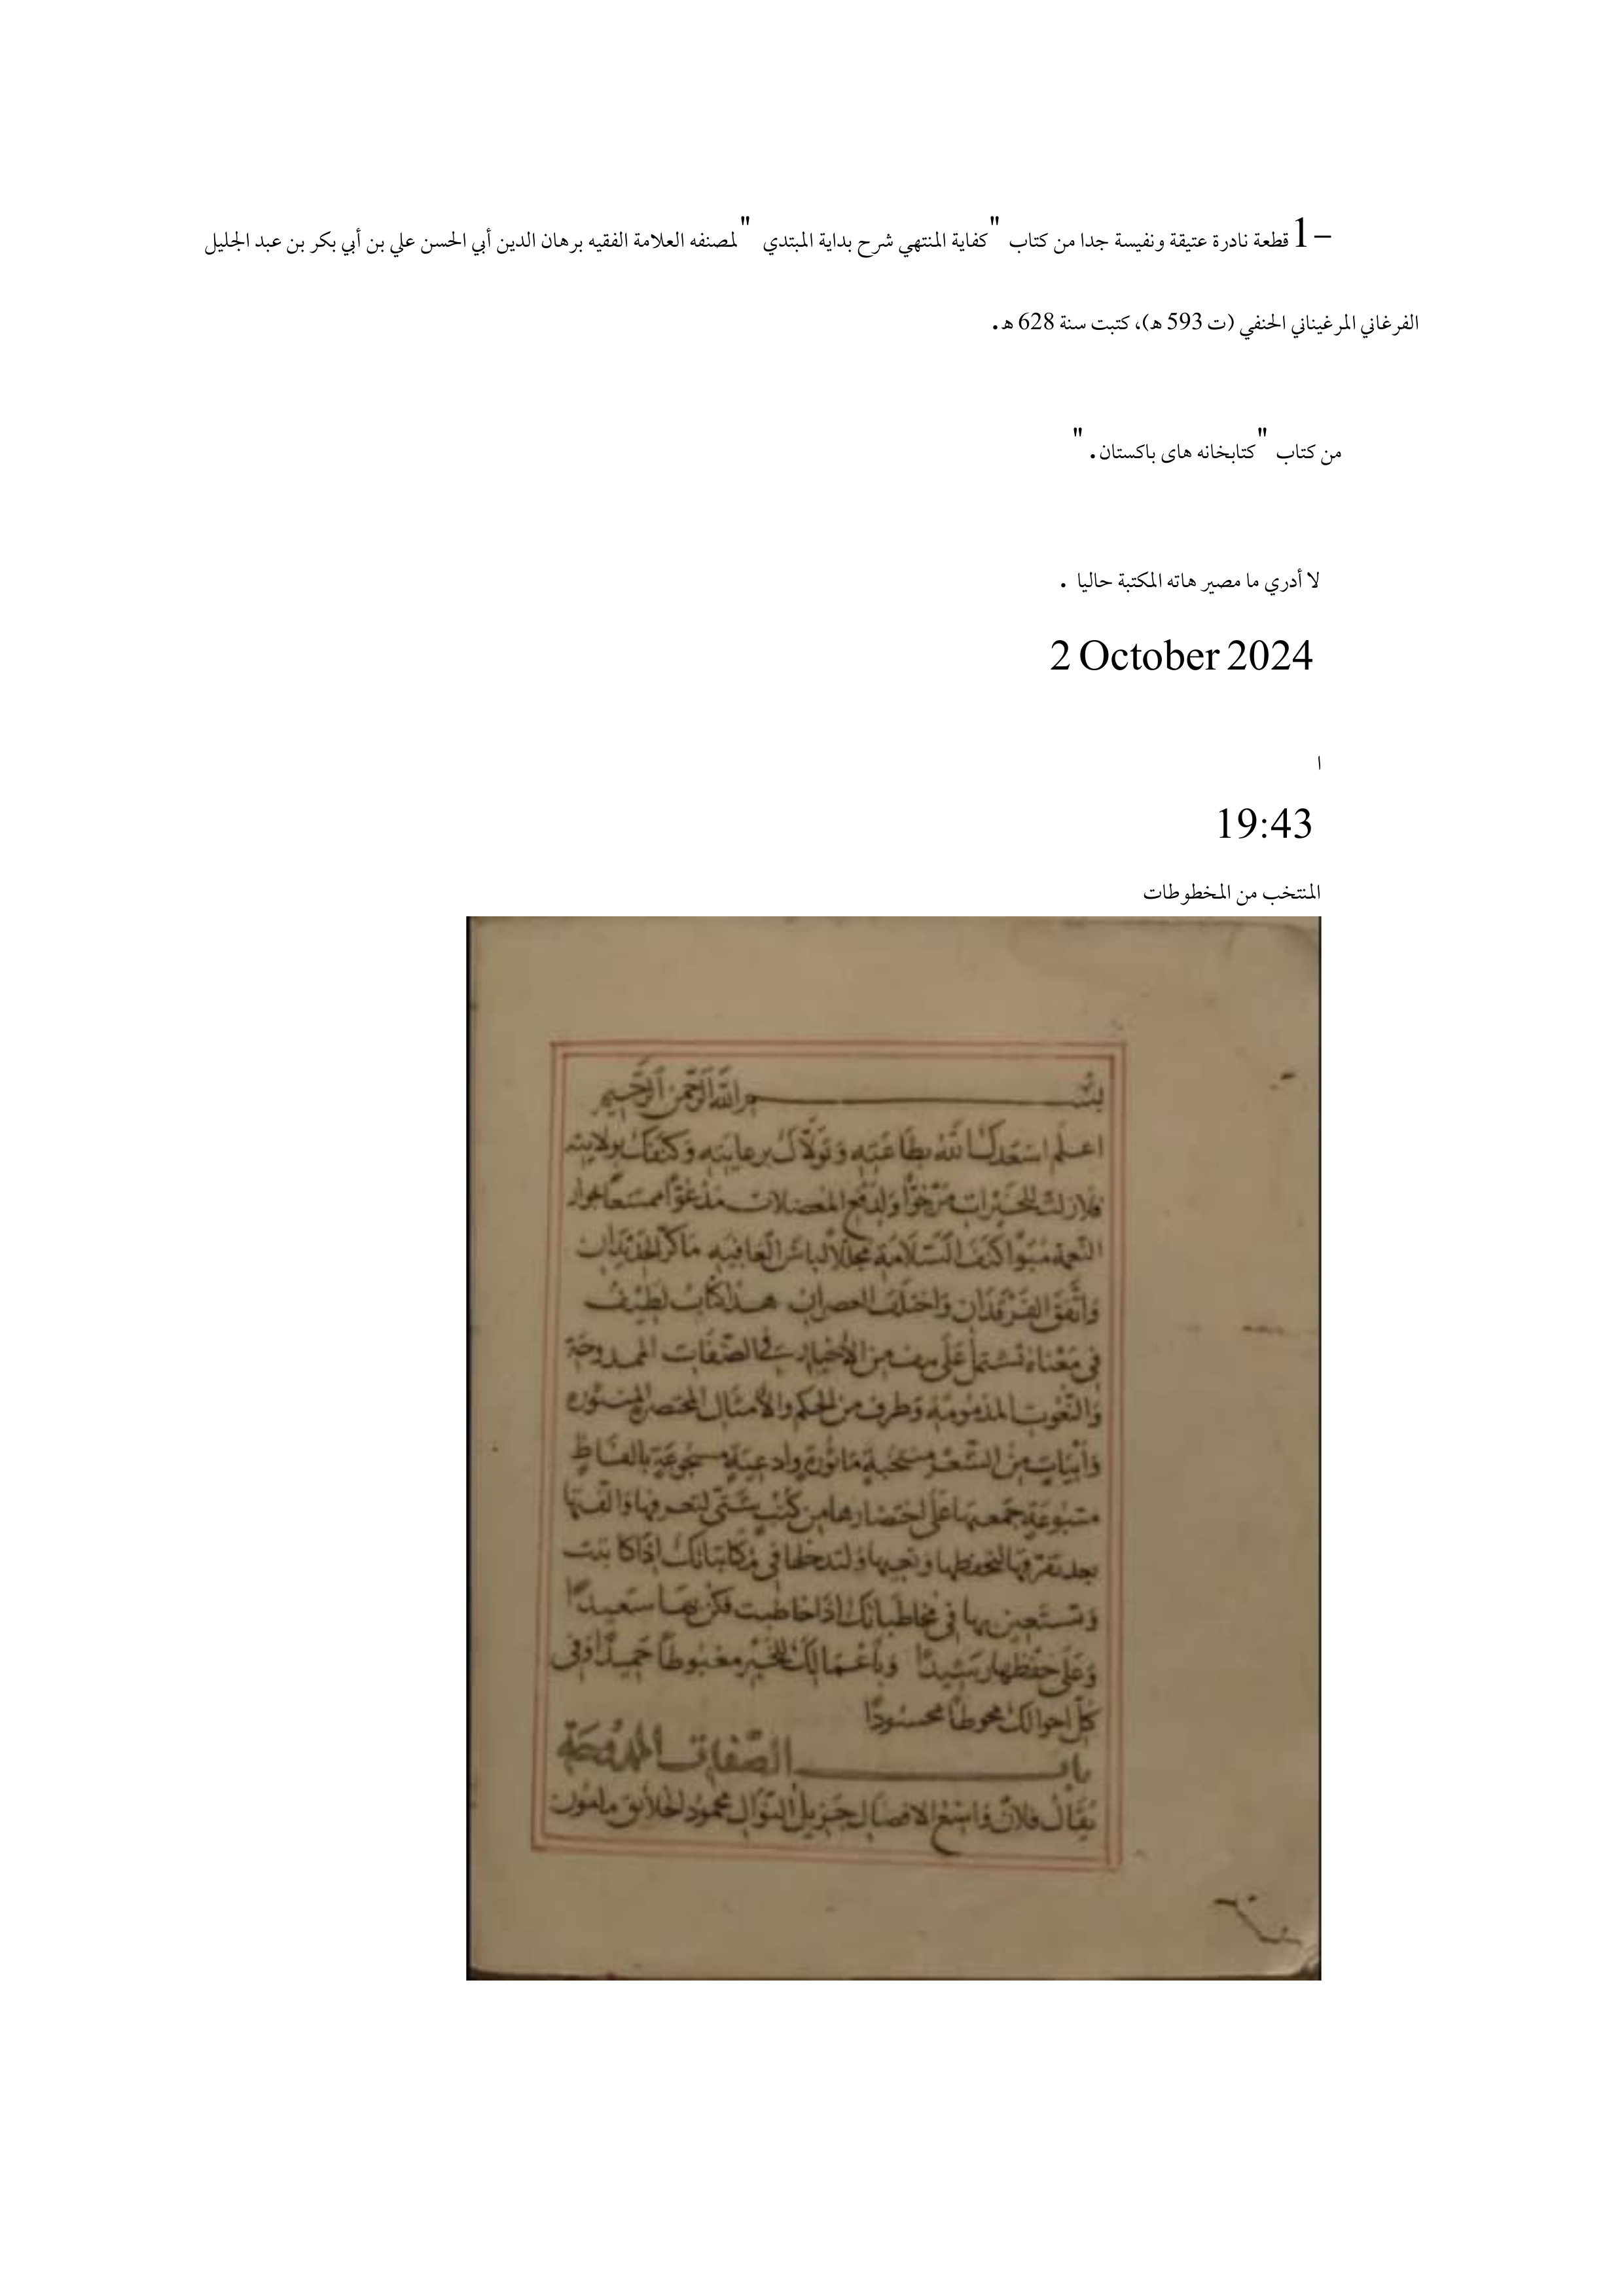 1- قطعة نادرة عتيقة ونفيسة جدا من كتاب "كفاية المنتهي شرح بداية المبتدي" لمصنفه العلامة الفقيه برهان الدين أبي الحسن علي بن أبي بكر بن عبد الجليل
الفرغاني المرغيناني الحنفي (ت 593 هـ)، كتبت سنة 628 هـ.
من كتاب "كتابخانه های باكستان."
لا أدري ما مصير هاته المكتبة حاليا .
2 October 2024
ا
19:43
المنتخب من المخطوطات
بسم الله الرحمن الرحيم
اعلم اسعدك الله بطاعته وتولاك برعايته وكنفك بولايته
فلازلت للخيرات مرجوا ولدفع المعضلات مدعوا ممتعا بجوار
النعمة مبوا كنف السلامة مجللا لباس العافيه ماكر الجديدان
واتفق الفرقدان واختلف العصران هذا كتاب لطيف
في معناه تشتمل على من الأخبار في الصفات الممدوحة
والنعوت المذمومة وطرف من الحكم والأمثال المختصرة
وأبيات من الشعر منتخبة ماثورة وادعية مسجوعة بالفاظ
متبوعة جمعتها على اختصارها من كتب شتى والفتها
بعد تفرقها لتحفظها وتعيها ولتدخلها في مكاتباتك اذا كاتبت
وتستعين بها في مخاطباتك اذا خاطبت فكن بها سعيدا
وعلى حفظها وباعمالك للخير مغبوطا حميدا وفي
كل احوالك محوطا محسودا
باب الصفات الممدوحة
يقال فلان واسع الافضال جزيل النوال محمود الخلائق مامون